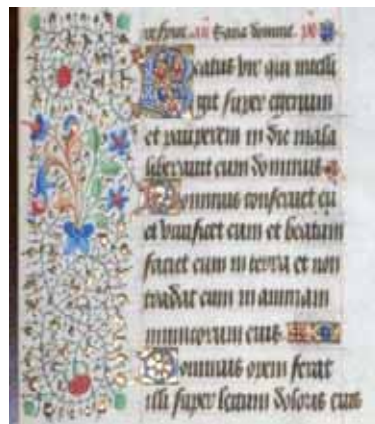 Beatus vir qui intelli
git super egenum
et pauperem in die mala
liberavit eum dominus
Dominus conservet eu
et vivificet eum et beatum
faciat eum in terra et non
tradat eum in animam
inimicorum eius
Dominus opem ferat
illi super lectum doloris eius